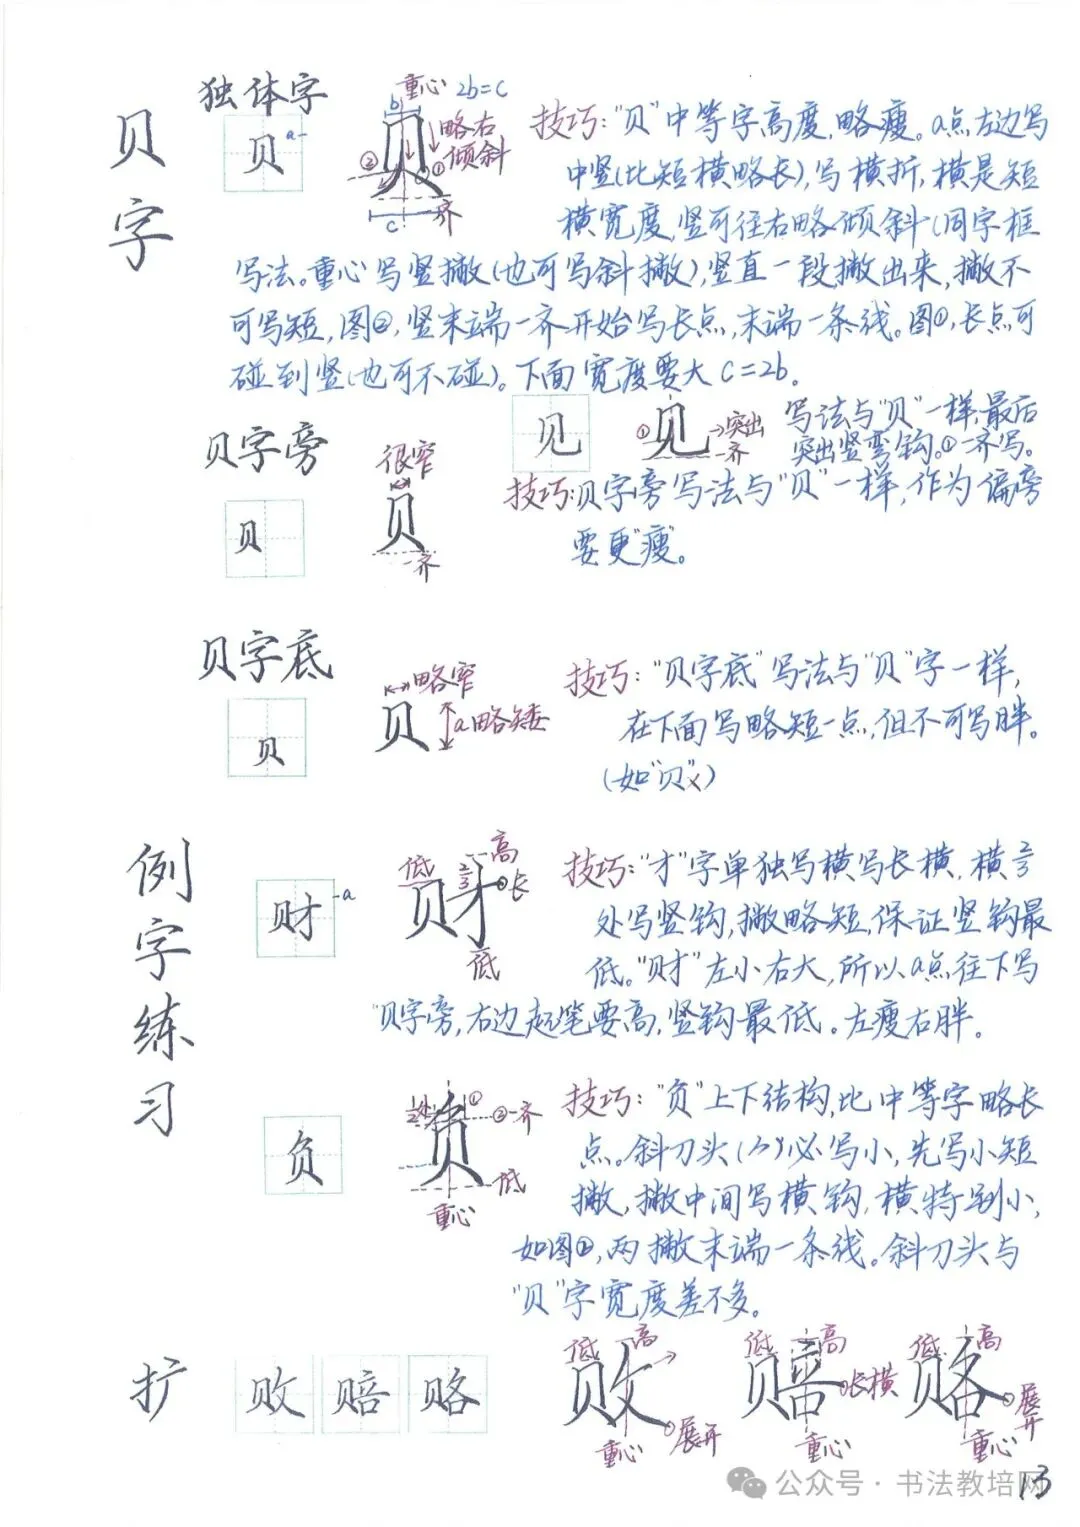 贝字
独体字
贝 a
重心 2b=c
b
略右
倾斜
②
①
一齐
c
技巧："贝"中等字高度，略瘦。a点左边写
中竖（比短横略长），写横折，横是短
横宽度，竖可往右略倾斜（同字框
写法。重心写竖撇（也可写斜撇），竖直一段撇出来，撇不
可写短，图②，竖末端一齐开始写长点，末端一条线。图①，长点可
碰到竖（也可不碰）。下面宽度要大 c=2b。
见
①见
→突出
一齐
写法与"贝"一样，最后
突出竖弯钩。①一齐写。
贝字旁
很窄
贝
贝
一齐
技巧：贝字旁写法与"贝"一样，作为偏旁
要更"瘦"。
贝字底
略窄
贝
贝
a略矮
技巧："贝字底"写法与"贝"字一样，
在下面写略短一点，但不可写胖。
（如"贝"×）
例字练习
财 a
低
2/3
高
财
长
低
技巧："才"字单独写横写长横，横2/3
处写竖钩，撇略短，保证竖钩最
低。"财"左小右大，所以a点往下写
贝字旁，右边起笔要高，竖钩最低。左瘦右胖。
负
负
①
②一齐
低
重心
技巧："负"上下结构，比中等字略长
点。斜刀头（⺈）必写小，先写小短
撇，撇中间写横钩，横特别小，
如图②，两撇末端一条线。斜刀头与
"贝"字宽度差不多。
扩
败 赔 略
低 高
败
展开
重心
低 高
赔
长横
重心
低 高
赂
展开
重心
公众号·书法教培网
13